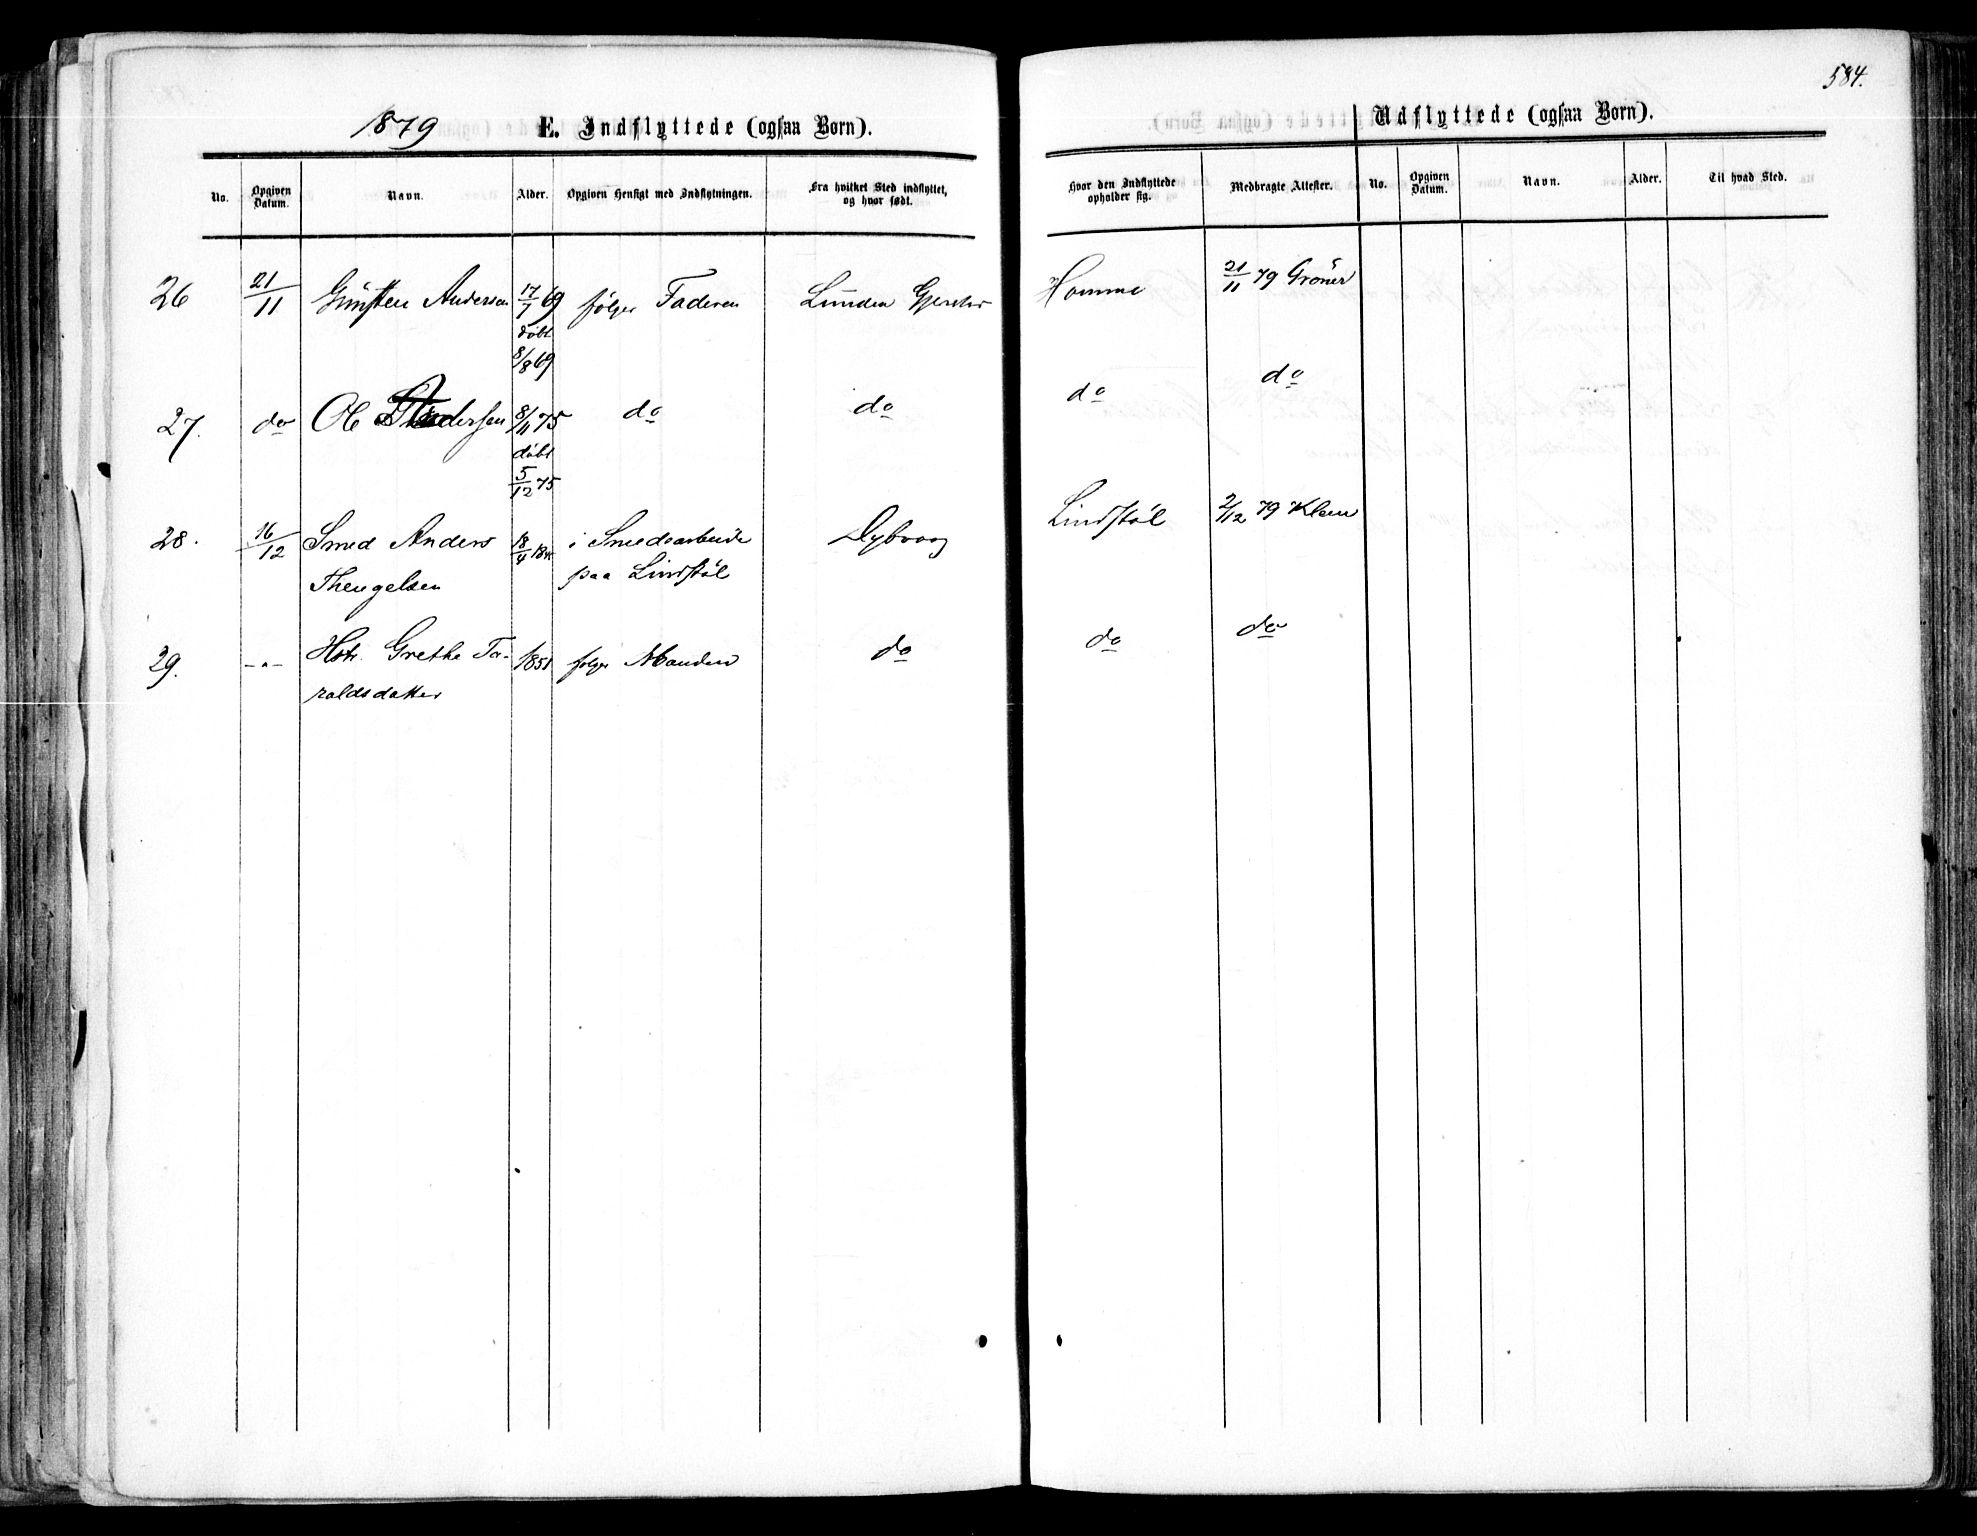 584.
1879 E. Indflyttede (ogsaa Børn). Udflyttede (ogsaa Børn).
No. Opgiven Datum. Navn. Alder. Opgiven Hensigt med Indflytningen. Fra hvilket Sted indflyttet, og hvor født. Hvor den Indflyttede opholder sig. Medbragte Attester. No. Opgiven Datum. Navn. Alder. Til hvad Sted.
26 21/11 Gunsten Andersen 17/7 69 følger Faderen Lunden Homme 21/11 79 Grøner
døbt
8/8 69
27. do Ole Andersen 8/11 75 do do do do
døbt
5/12 75
28. 16/12 Smed Anders 18/4 i Smedearbeide Dybvaag Lindstøl 2/12 79 Klem
Thengelsen paa Lindstøl
29. -"- Hstr. Grethe Ta- 1851 følger Manden do do do
raldsdatter